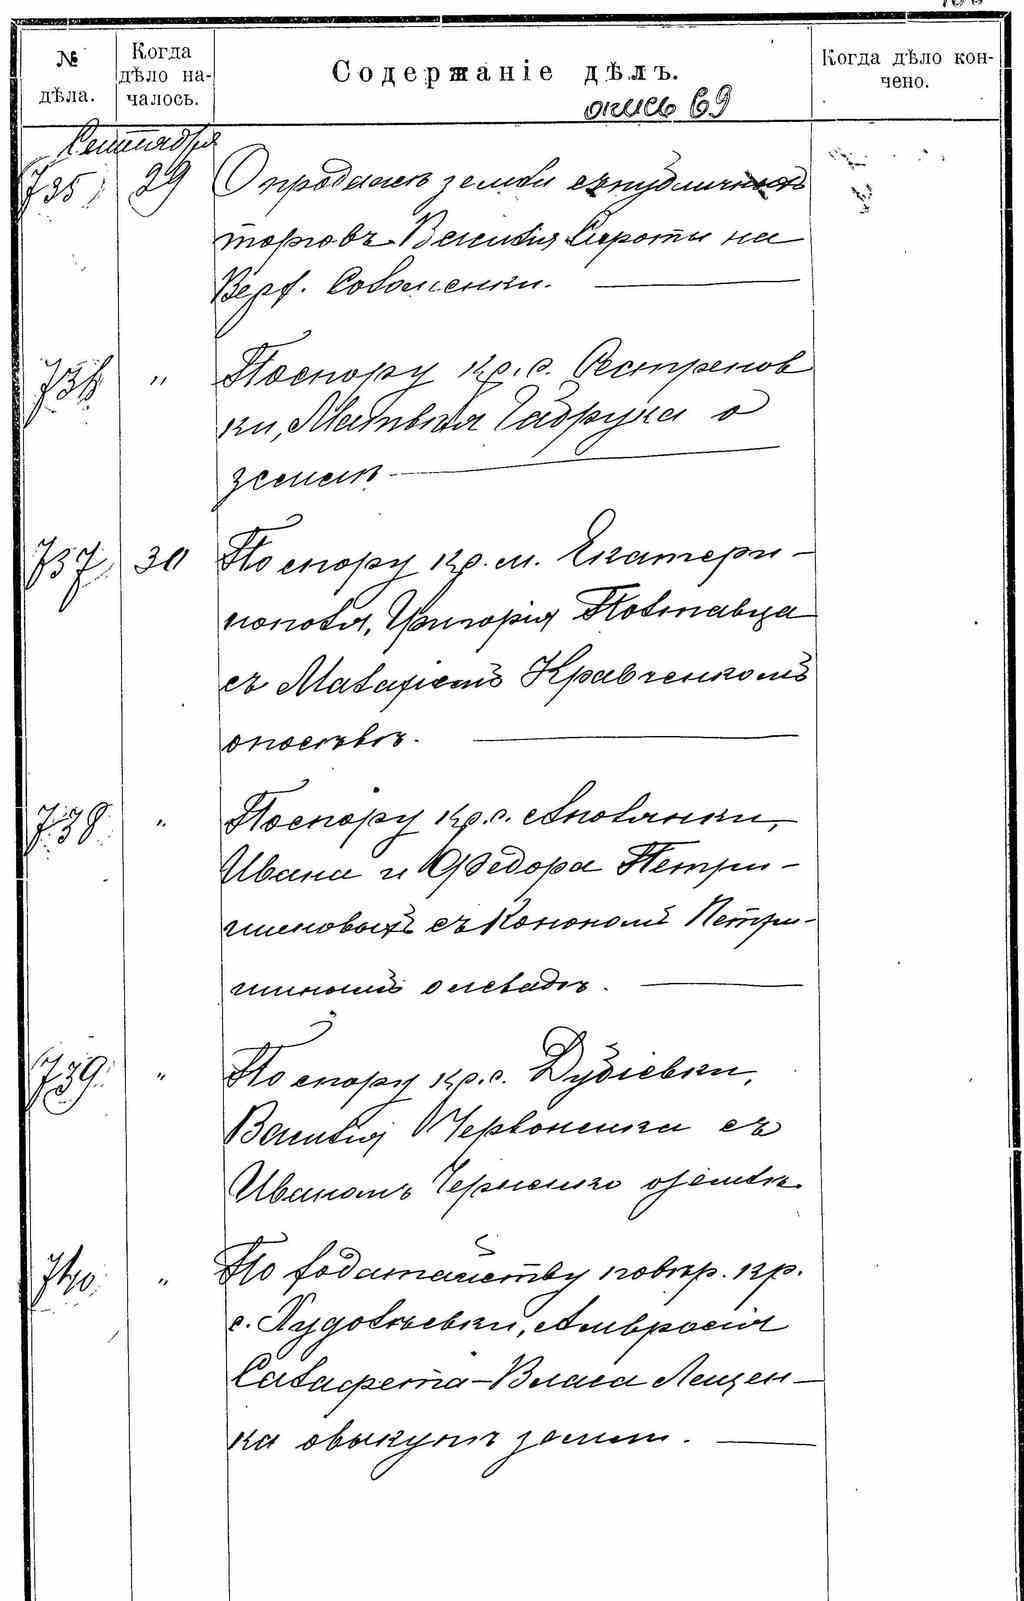 № дѣла.
Когда дѣло началось.
Содержаніе дѣлъ.
Когда дѣло кончено.
опись 69
Сентября
735 29 О продажѣ земли съ публичныхъ
торговъ Василія Сироты на
Верх. Соломенки.
736 " По спору кр. с. Сестренов
ки, Матвѣя Габрука о
землѣ
737 30 По спору кр. м. Екатери-
нополя, Григорія Полтавца
съ Макаріемъ Кравченкомъ
о посѣвѣ.
738 " По спору кр. с. Аполянки,
Ивана и Федора Петри-
шиновыхъ съ Конономъ Петри-
шинымъ о левадѣ.
739 " По спору кр. с. Дубіевки,
Василія Червоненка съ
Иваномъ Черненко о землѣ.
740 " По ходатайству повѣр. кр.
с. Худолѣевки, Амвросія
Саварета-Власа Лещен-
ка о выкупѣ земли.